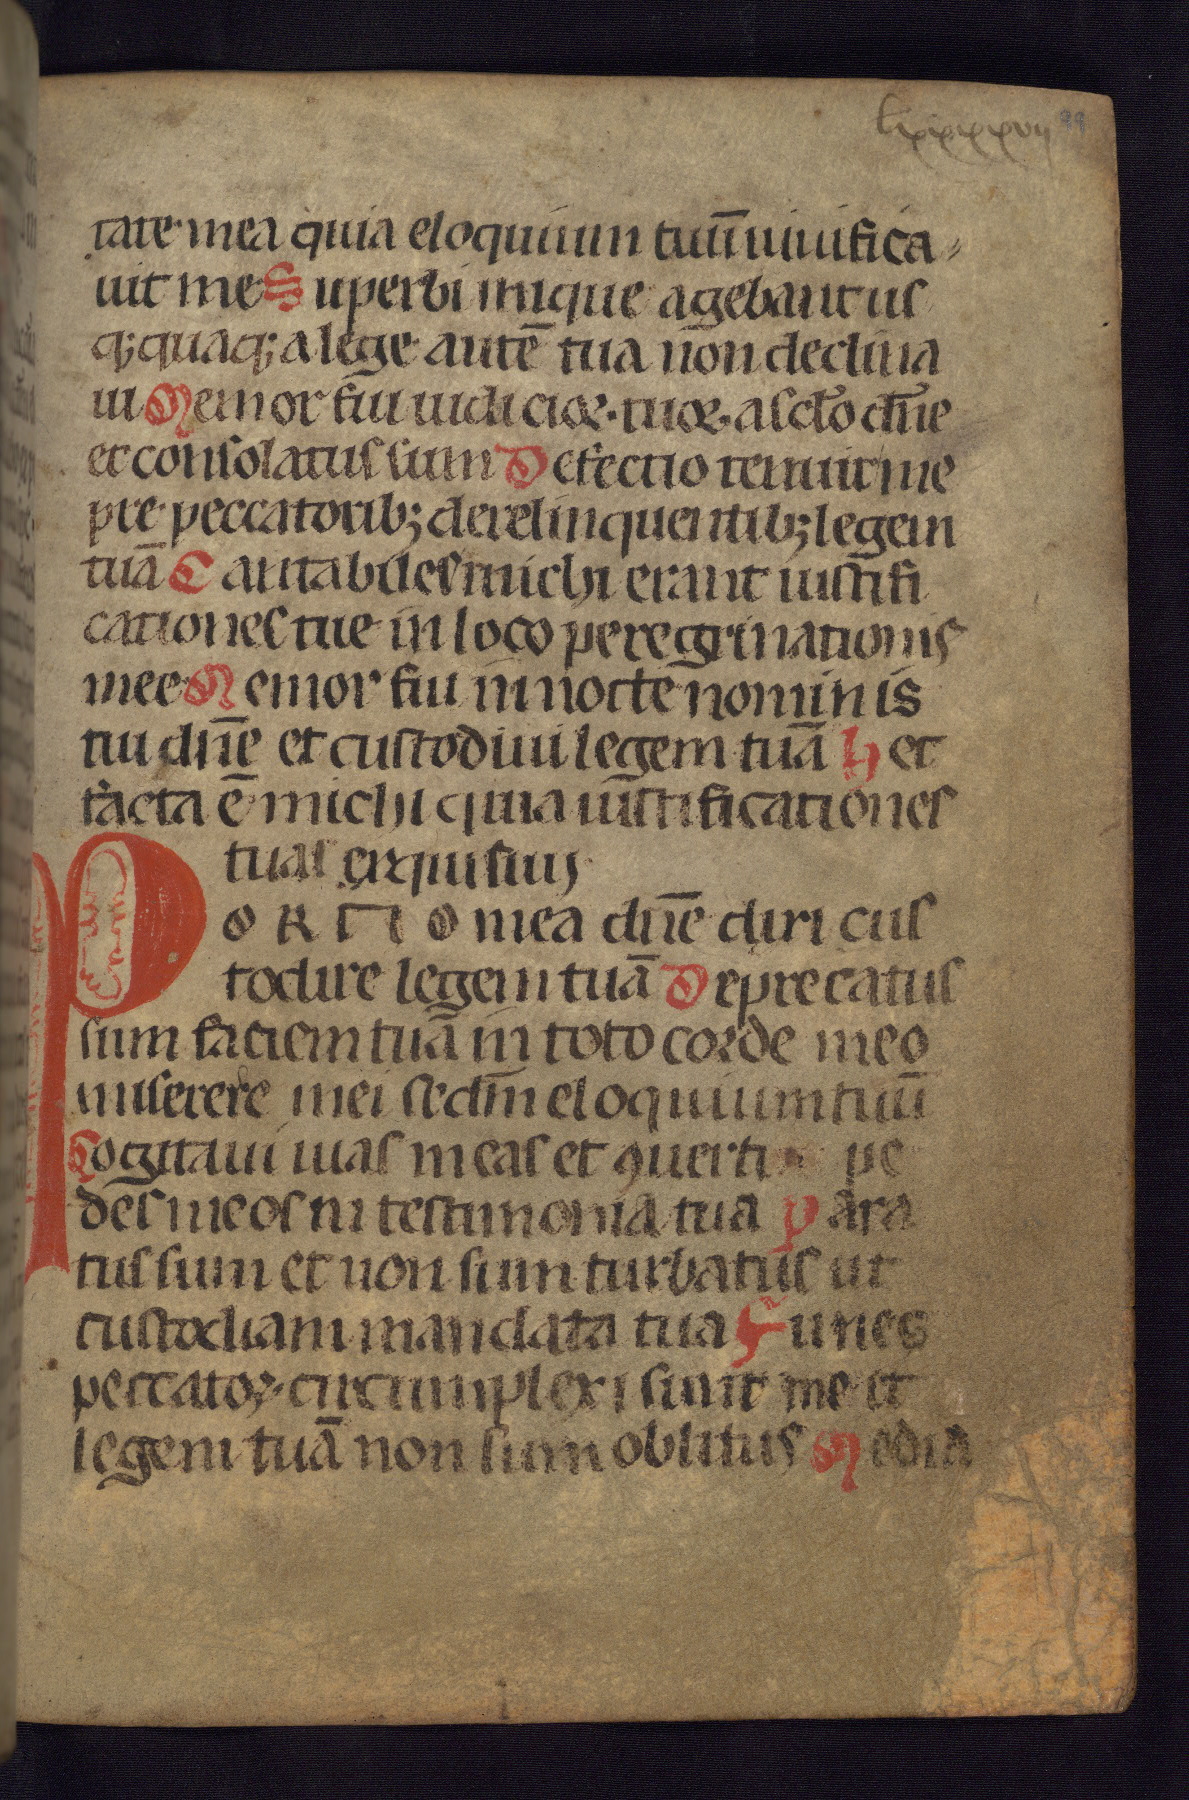 lxxxxvii 99
tate mea quia eloquium tuū uiuifica
uit me Superbi inique agebant us
q;quaq; a lege autē tua non declina
ui Memor fui iudicioꝝ tuoꝝ a sclo dn̄e
et consolatus sum Defectio tenuit me
pre peccatorib; derelinquentib; legem
tuā Cantabiles michi erant iustifi
cationes tue in loco peregrinationis
mee Memor fui in nocte nominis
tui dn̄e et custodiui legem tuā hec
facta ē michi quia iustificationes
tuas exquisiui
PORTIO mea dn̄e dixi cus
todire legem tuā Deprecatus
sum faciem tuā in toto corde meo
miserere mei sedm̄ eloquium tuū
Cogitaui uias meas et ꝯuerti pe
des meos in testimonia tua Para
tus sum et non sum turbatus ut
custodiam mandata tua Funes
peccatoꝝ circumplexi sunt me et
legem tuā non sum oblitus Media